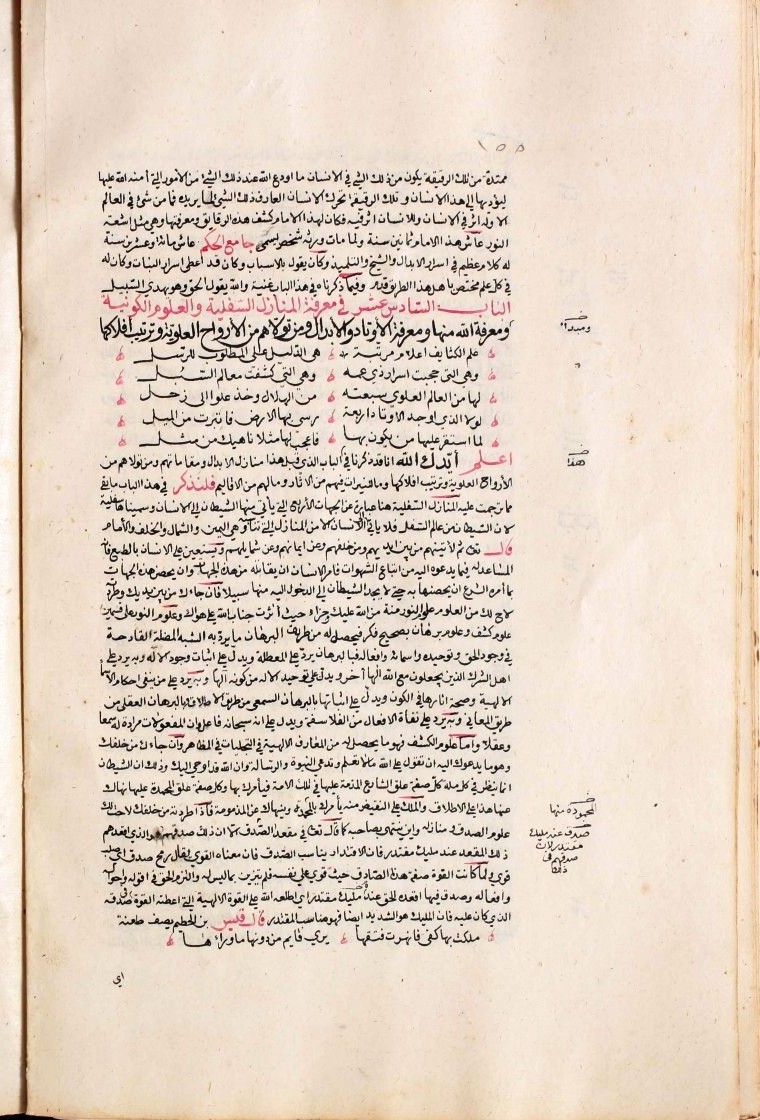 ١٥٥
ممتدة من تلك الرقيقة يكون من ذلك الشئ في الانسان ما اودع الله عند ذلك الشئ من الأمور التي أمنه الله عليها
ليؤديها إلى هذا الانسان وتلك الرقيقة تحرك الانسان العارف ذلك الشئ لما يريده فما من شئ في العالم
الا وله اثر في الانسان وللانسان اثر فيه فكان لهذا الامام كشف هذه الرقايق ومعرفتها وهي مثل اشعة
النور عاش هذا الامام ثمانين سنة ولما مات ورثه شخص يسمى جامع الحكم عاش مائة وعشرين سنة
له كلام عظيم في اسرار الابدال والشيخ والتلميذ وكان يقول بالاسباب وكان قد أعطى اسرار النبات وكان له
في كل علم مختص باهل هذا الطريق قدم وفيما ذكرناه في هذا الباب غنية والله يقول الحق وهو يهدي السبيل
الباب السادس عشر في معرفة المنازل السفلية والعلوم الكونية
ومعرفة الله منها ومعرفة الأوتاد والابدال ومن تولاهم من الأرواح العلوية وترتيب افلاكها
علم الكثايف اعلام مرتبة هي الدليل على المطلوب للرسل
وهي التي حجبت اسرار ذي عمه وهي التي كشفت معالم السبل
لها من العالم العلوي سبعته من الهلال وخذ علوا الى زحل
لولا الذي اوجد الاوتاد اربعة رسى بها الارض فانبتزت من الميل
لما استقر عليها من يكون بها فاعجب لها مثلا ناهيك من مثل
اعلم أيدك الله انا قد ذكرنا في الباب الذي قبل هذا منازل الابدال ومقاماتهم ومن تولاهم من
الأرواح العلوية وترتيب افلاكها وما للنيرات فيهم من الاثار وما لهم من الاقاليم فلنذكر في هذا الباب ما بقي
مما ترجمت عليه المنازل السفلية هنا عبارة عن الجهات الأربع التي يأتي منها الشيطان إلى الانسان وسميناها سفلية
لان الشيطان من عالم السفل فلا يأتي إلى الانسان الا من المنازل التي تناسبه وهي اليمين والشمال والخلف والأمام
قال تعالى ثم لآتينهم من بين ايديهم ومن خلفهم وعن ايمانهم وعن شمايلهم ويستعين على الانسان بالطبع فانه
المساعد له فيما يدعوه اليه من اتباع الشهوات فأمر الانسان ان يقاتله من هذه الجهات وان يحصن هذه الجهات
بما أمره الشرع ان يحصنها به حتى لا يجد الشيطان إلى الدخول اليه منها سبيلا فان جاءك من بين يديك وطردته
لاح لك من العلوم علوم النور منة من الله عليك وجزاء حيث آثرت جناب الله على هواك وعلوم النور على قسمين
علوم كشف وعلوم برهان بصحيح فكر فيحصل له من طريق البرهان ما يرد به الشبه المضلة القادحة
في وجود الحق وتوحيده واسمائه وافعاله فبالبرهان يرد على المعطلة ويدل على اثبات وجود الاله وبه يرد على
اهل الشرك الذين يجعلون مع الله الها آخر ويدل على توحيد الاله من كونه الها وبه يرد على من ينفي احكام الأسماء
الالهية وصحة اثارها في الكون ويدل على اثباتها بالبرهان السمعي من طريق الاطلاق وبالبرهان العقلي من
طريق المعاني وبه يرد على نفاة الافعال من الفلاسفة ويدل على انه سبحانه فاعل وان المفعولات مرادة له سمعا
وعقلا وأما علوم الكشف فهو ما يحصل له من المعارف الالهية في التجليات في المظاهر وان جاءك من خلفك
وهو ما يدعوك اليه ان تقول على الله ما لا تعلم وتدعي النبوة والرسالة وان الله قد اوحى اليك وذلك ان الشيطان
انما ينظر في كل ملة كل صفة علق الشارع المذمة عليها في تلك الامة فيأمرك بها وكل صفة علق المحمدة عليها نهاك
عنها هذا على الاطلاق والملك على النقيض منه يأمرك بالمحمدة وينهاك عن المذمومة فاذا طردته من خلفك لاحت لك
علوم الصدق ومنازله واين ينتهي بصاحبه كما قال تعالى في مقعد الصدق كما ان ذلك صدقهم هو الذي اقعدهم
ذلك المقعد عند مليك مقتدر فان الاقتدار يناسب الصدق فان معناه القوي يقال رمح صدق اي صلب
قوي ولما كانت القوة صفة هذا الصادق حيث قوي على نفسه فلم يتزين بما ليس له والتزم الحق في اقواله واحواله
وافعاله وصدق فيها اقعده الحق عند مليك مقتدر اي اطلعه الله على القوة الالهية التي اعطته القوة في صدقه
الذي كان عليه فان المليك هو الشديد ايضا فهو مناسب للمقتدر قال قيس بن الخطيم يصف طعنة
ملكت بها كفي فانهرت فتقها يرى قايم من دونها ما وراءها
اي
ومبدأ
هذا
المحمودة منها
صدق عند مليك
مقتدر